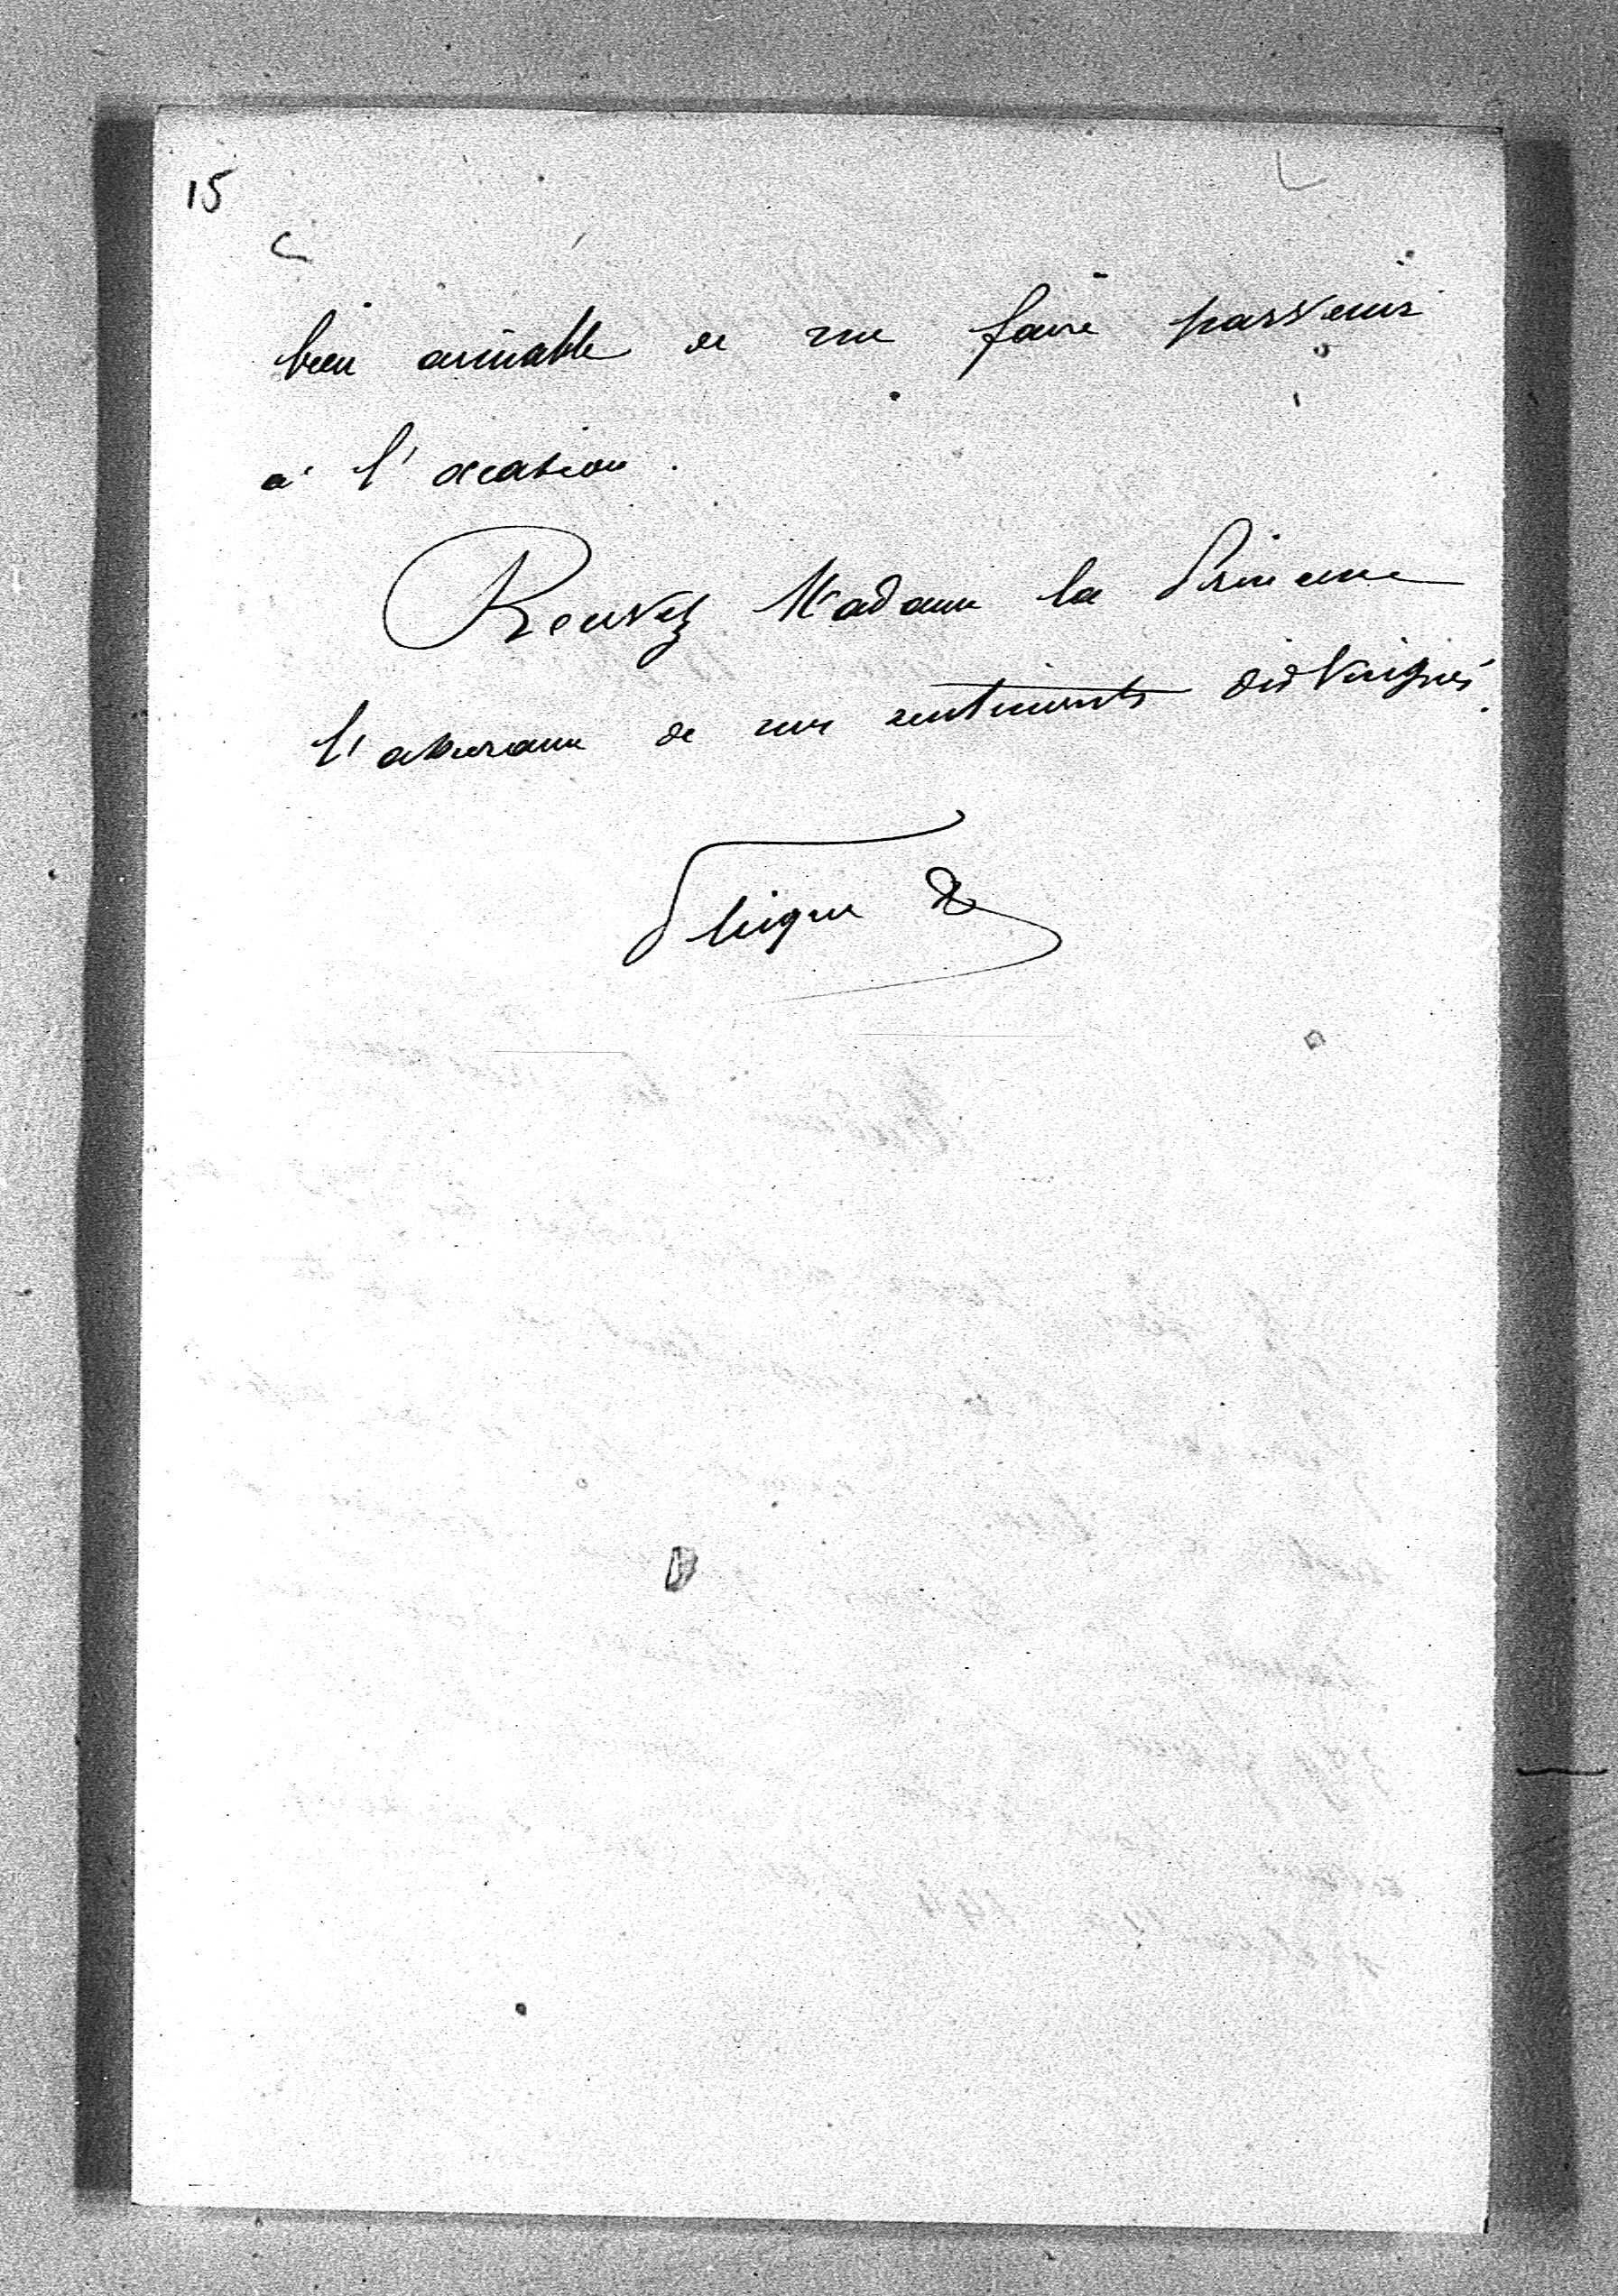 15
bien aimable de me faire parvenir
à l'occasion.
Recevez Madame la Princesse
l'assurance de mes sentiments distingués.